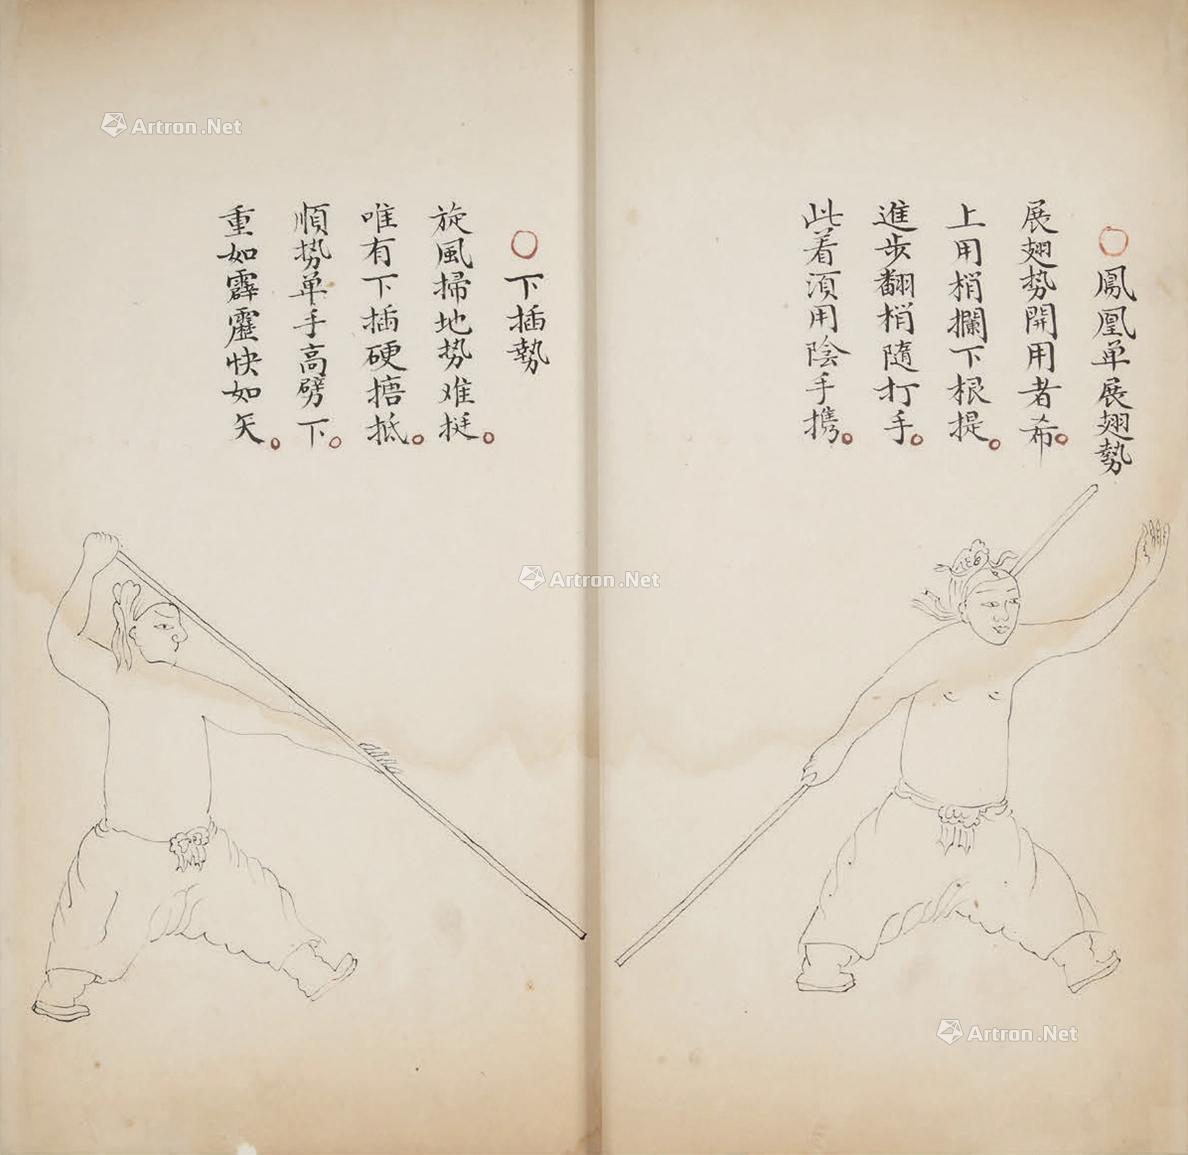 ○鳳凰单展翅勢
展翅势開用者希。
上用梢攔下根提。
進步翻梢隨打手。
此着須用陰手携。
○下插勢
旋風掃地势难挺。
唯有下插硬搪抵。
順势单手高劈下。
重如霹靂快如矢。
Artron.Net
Artron.Net
Artron.Net